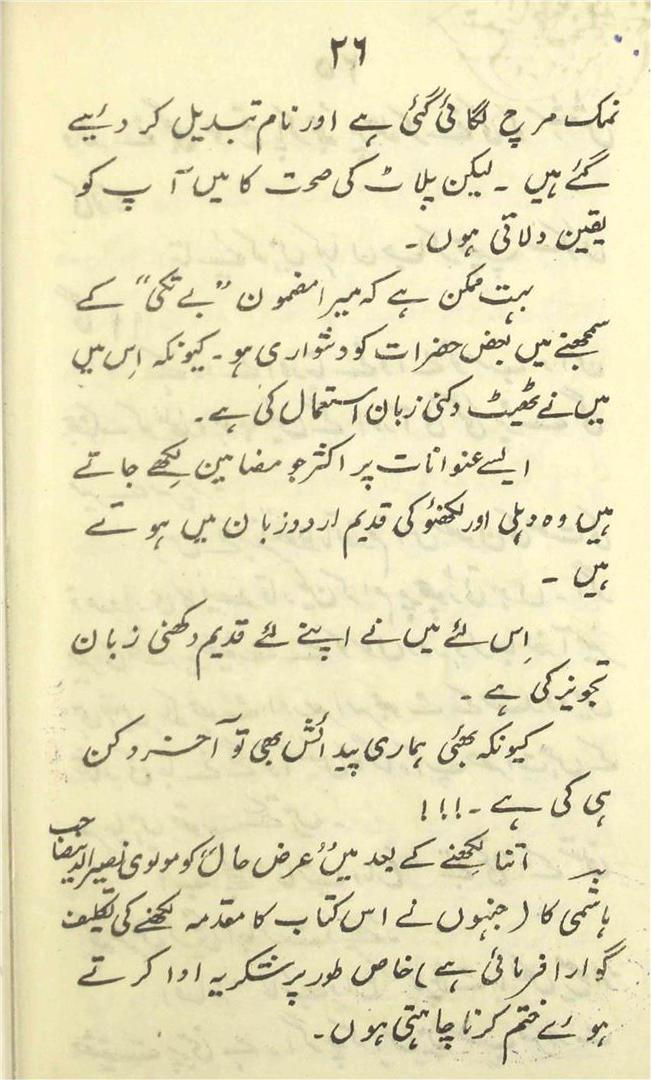 ۲۶
نمک مرچ لگائی گئی ہے اور نام تبدیل کر دئیے
گئے ہیں ۔ لیکن پلاٹ کی صحت کا میں آپ کو
یقین دلاتی ہوں ۔
بہت ممکن ہے کہ میرا مضمون ”بے تکی“ کے
سمجھنے میں بعض حضرات کو دشواری ہو ۔ کیونکہ اِس میں
میں نے ٹھیٹ دکنی زبان استعمال کی ہے ۔
ایسے عنوانات پر اکثر جو مضامین لکھے جاتے
ہیں وہ دہلی اور لکھنؤ کی قدیم اردو زبان میں ہوتے
ہیں ۔
اِس لئے میں نے اپنے لئے قدیم دکھنی زبان
تجویز کی ہے ۔
کیونکہ بھئی ہماری پیدائش بھی تو آخر دکن
ہی کی ہے ۔ !!!
اتنا لکھنے کے بعد میں ”عرض حال“ کو مولوی نصیرالدین صاحب
ہاشمی کا (جنہوں نے اس کتاب کا مقدمہ لکھنے کی تکلیف
گوارا فرمائی ہے) خاص طور پر شکریہ ادا کرتے
ہوئے ختم کرنا چاہتی ہوں ۔